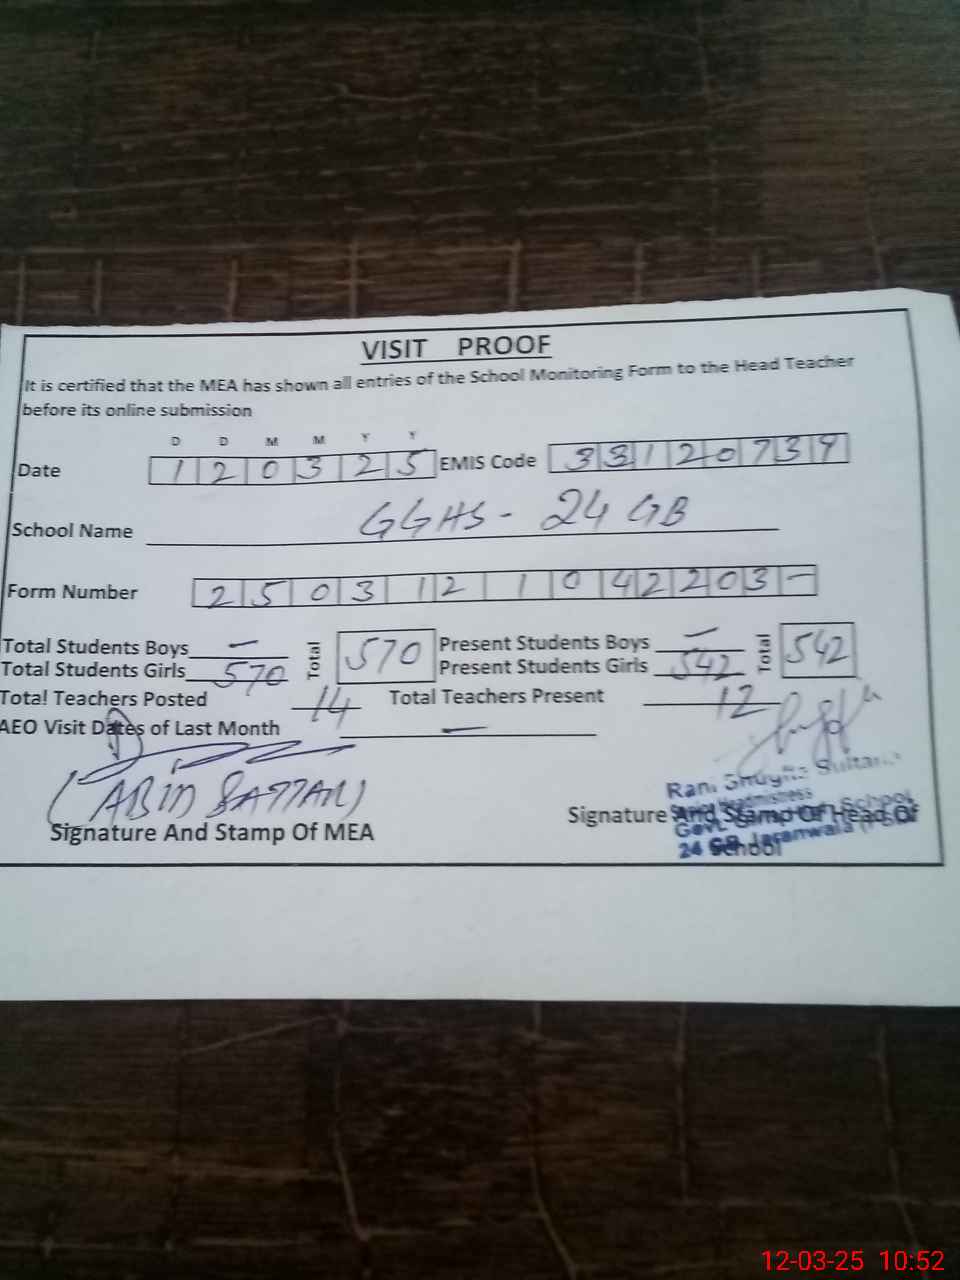 VISIT PROOF
It is certified that the MEA has shown all entries of the School Monitoring Form to the Head Teacher
before its online submission
D D M M Y Y
Date 1 2 0 3 2 5 EMIS Code 3 3 1 2 0 7 3 9
School Name GGHS - 24 GB
Form Number 2 5 0 3 1 2 1 0 4 2 2 0 3 -
Total Students Boys - Total 570 Present Students Boys - Total 542
Total Students Girls 570 Present Students Girls 542
Total Teachers Posted 14 Total Teachers Present 12
AEO Visit Dates of Last Month -
(ABID SATTAR)
Signature And Stamp Of MEA
Rani Sultana
Senior Headmistress
Signature And Stamp Of Head Of
School
Govt. School
24 GB Jaranwala
12-03-25 10:52